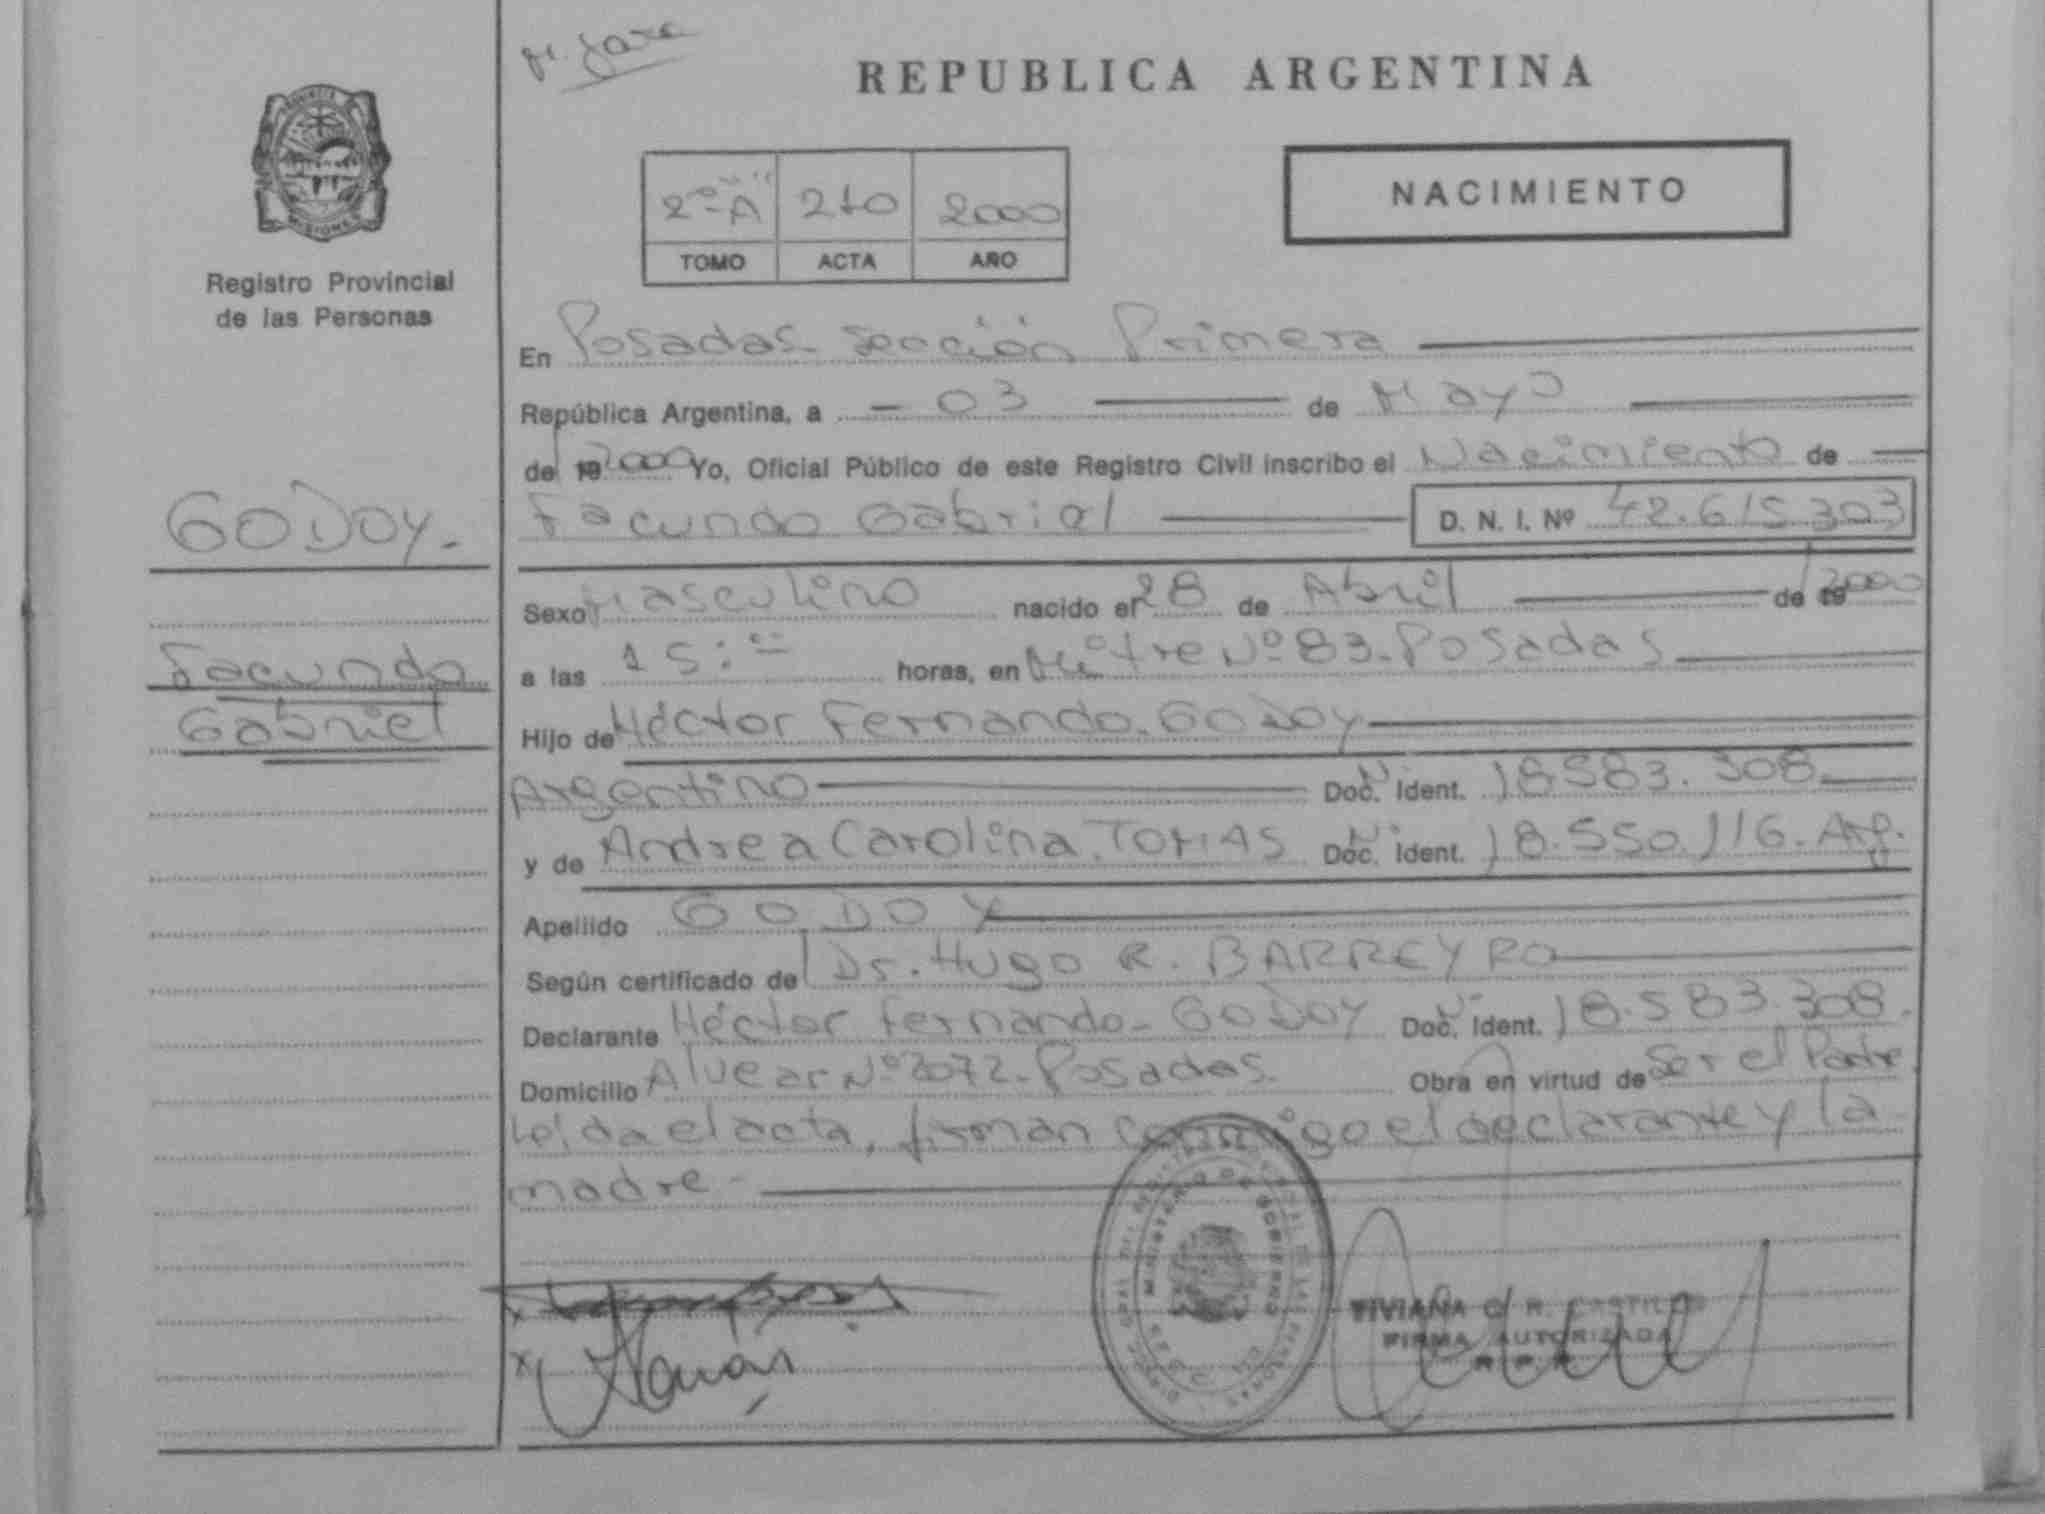 REPUBLICA ARGENTINA
PROVINCIA DE MISIONES
Registro Provincial
de las Personas
2º "A" 210 2000
TOMO ACTA AÑO
NACIMIENTO
En Posadas - Sección Primera
República Argentina, a - 03 de Mayo
de 19 2000 Yo, Oficial Público de este Registro Civil inscribo el Nacimiento de
Facundo Gabriel D. N. I. Nº 42.615.303
GODOY.-
Facundo
Gabriel
Sexo Masculino nacido el 28 de Abril de 19 2000
a las 15: horas, en Mitre Nº 83 - Posadas
Hijo de Héctor Fernando. GODOY
Argentino Doc. Ident. 18.583.308
y de Andrea Carolina. TOMAS Doc. Ident. 18.550.116. Arg.
Apellido GODOY
Según certificado de Dr. Hugo R. BARREYRO
Declarante Héctor Fernando - GODOY Doc. Ident. 18.583.308.
Domicilio Alvear Nº 2072 - Posadas. Obra en virtud de Ser el Padre.
Leída el acta, firman conmigo el declarante y la
madre -
MINISTERIO DE GOBIERNO
VIVIANA C. R. CASTILLO
FIRMA AUTORIZADA
R. P. P.